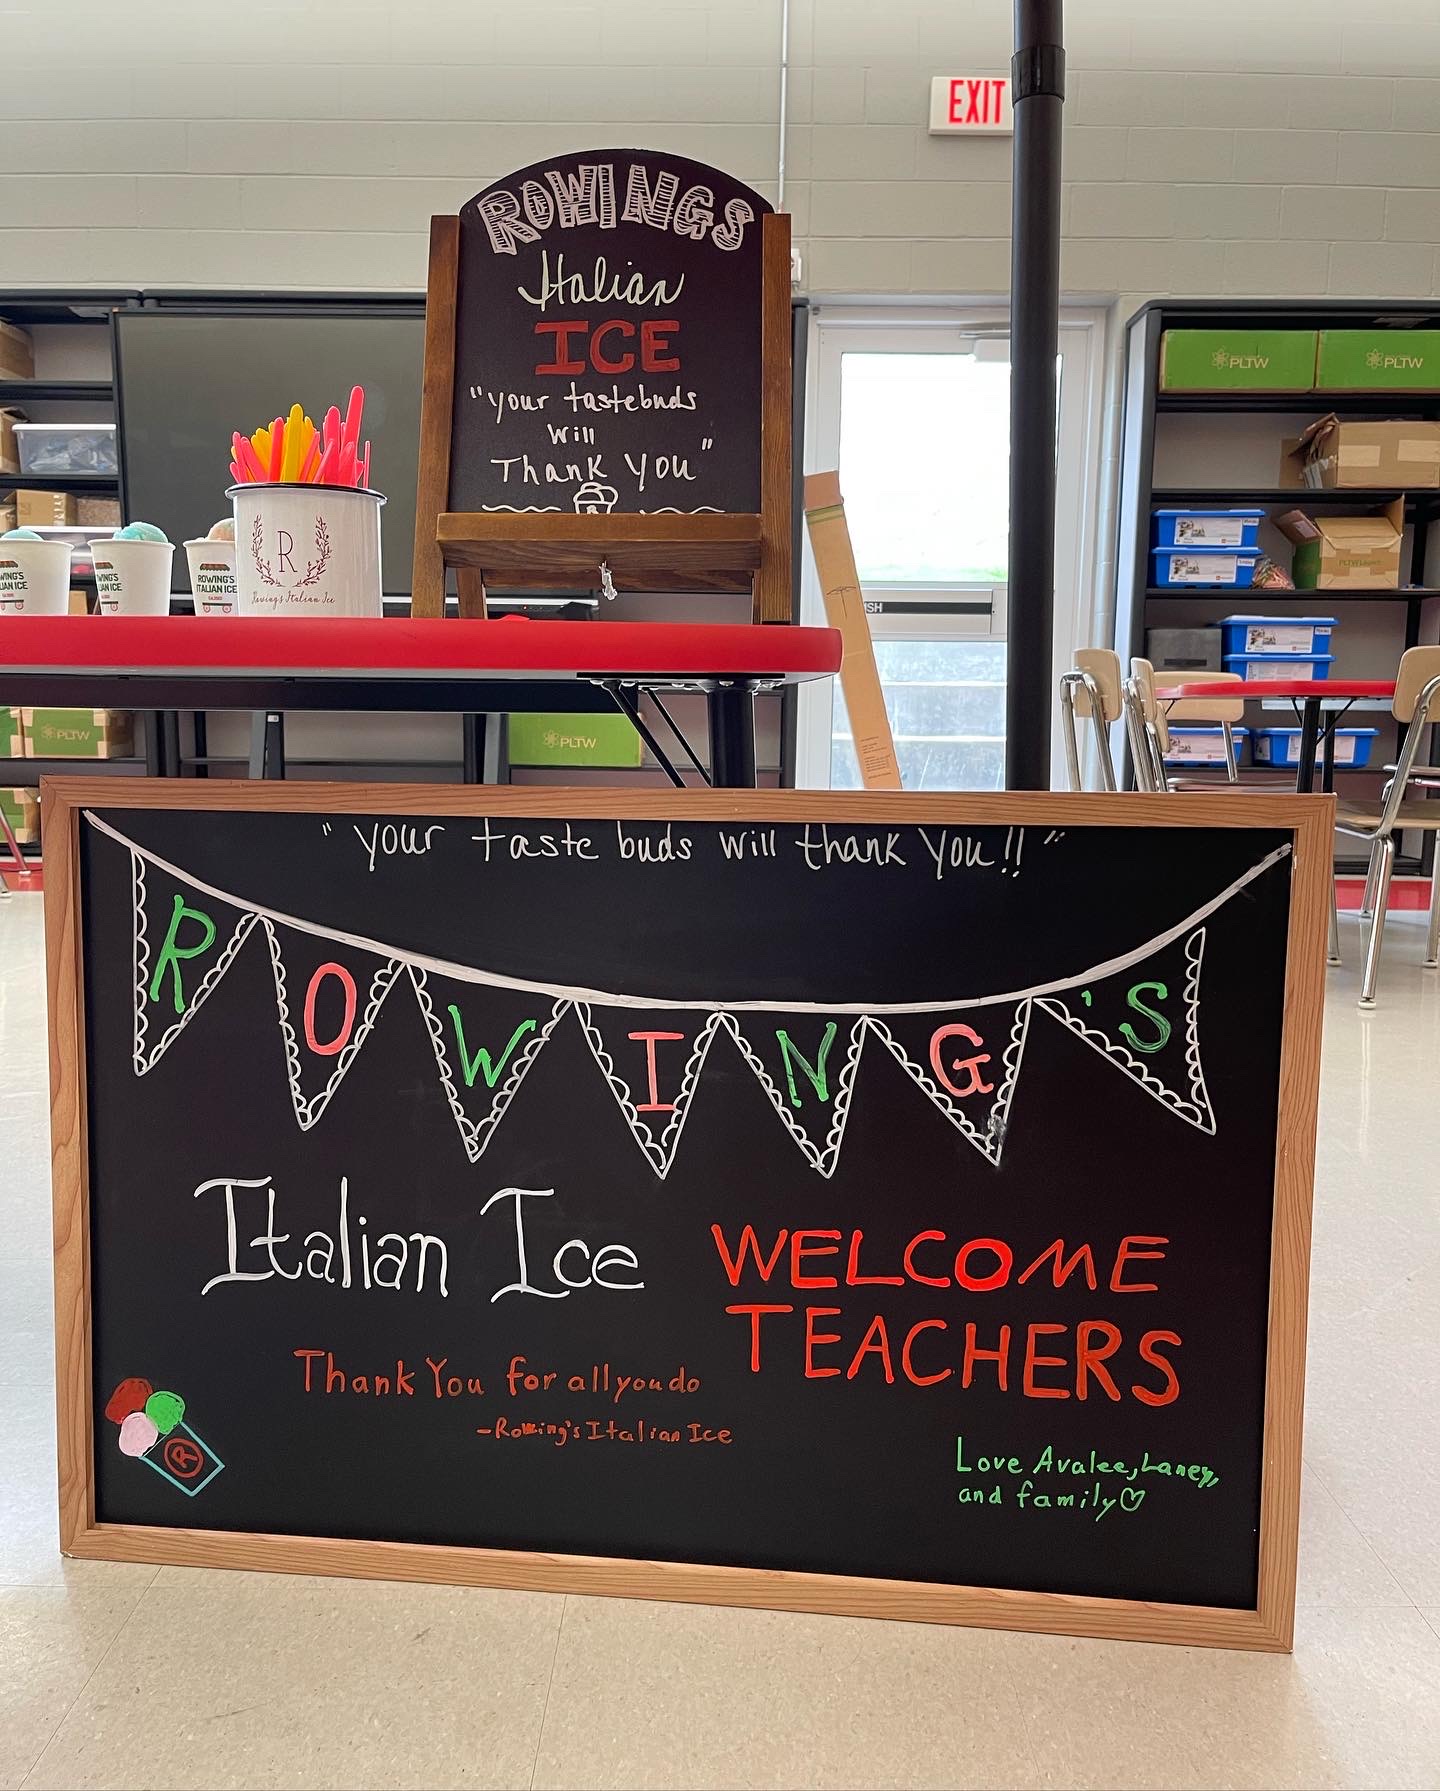 EXIT
ROWINGS
Italian
ICE
"your tastebuds
will
Thank You"
R
Rowing's Italian Ice
ROWING'S
ITALIAN ICE
PLTW
PLTW
PLTW
PLTW
"your taste buds will thank you!!"
ROWING'S
Italian Ice
WELCOME
TEACHERS
Thank You for all you do
-Rowing's Italian Ice
R
Love Avalee, Laney,
and family♡